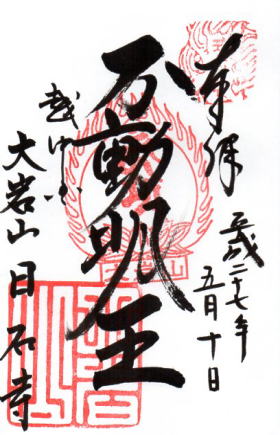 奉拝
平成二十七年
五月十日
不動明王
越中
大岩山日石寺